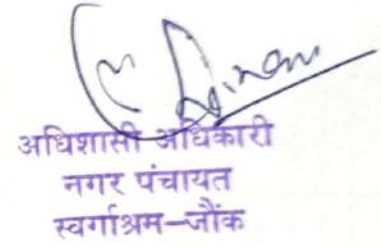 अधिशासी अधिकारी
नगर पंचायत
स्वर्गाश्रम–जौंक